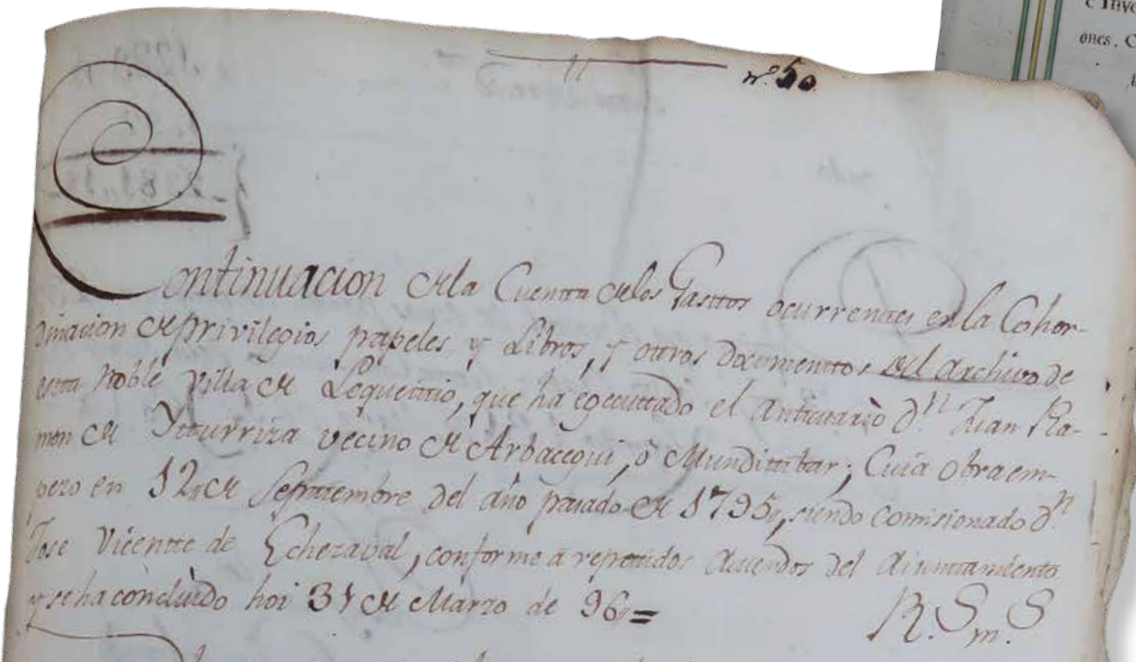 nº 50.
Continuacion de la Cuenta de los Gasttos ocurrentes en la Cohor-
dinacion de privilegios papeles, y Libros, y ottros Documenttos del Archivo de
estta Noble Villa de Lequeittio, que ha egecuttado el Anticuario Dn Juan Ra-
mon de Ytturriza vecino de Arbacegui, ò Munditibar; Cuia obra em-
pezo en 12 de Septtiembre del año pasado de 1795, siendo comisionado Dn
Jose Vicentte de Echezabal, conforme à repettidos Acuerdos del Aiunttamiento
y se ha concluido hoi 31 de Marzo de 96,=
R.S m.S
ones. C